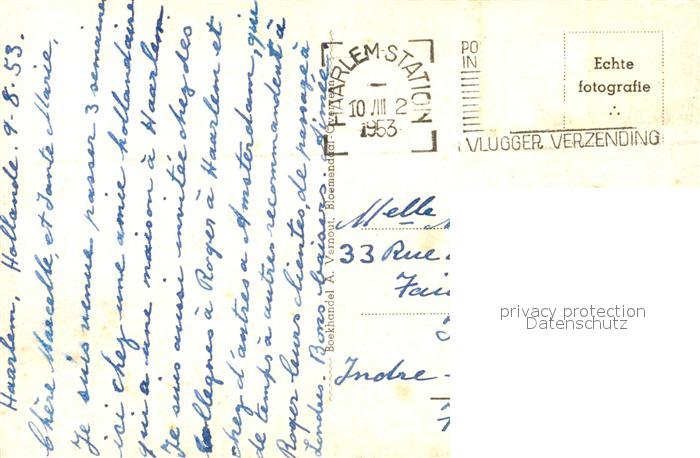 Haarlem, Hollande. 9-8.53.
Chère Marcelle, et Tante Marie,
Je suis venue passer 3 semaines
ici chez une amie hollandaise
qui a une maison à Haarlem
Je suis aussi invitée chez des
collegues à Roger à Haarlem et
chez d'autres à Amsterdam, que
de temps à autres recommandent à
Roger leurs clientes, de passage à
Londres. Bons baisers.
Boekhandel A. Vernout, Bloemendaal-Overveen
HAARLEM-STATION
10 VIII 2
1953
PO
IN
VLUGGER VERZENDING
Echte
fotografie
Melle
33 Rue
Indre-
privacy protection
Datenschutz